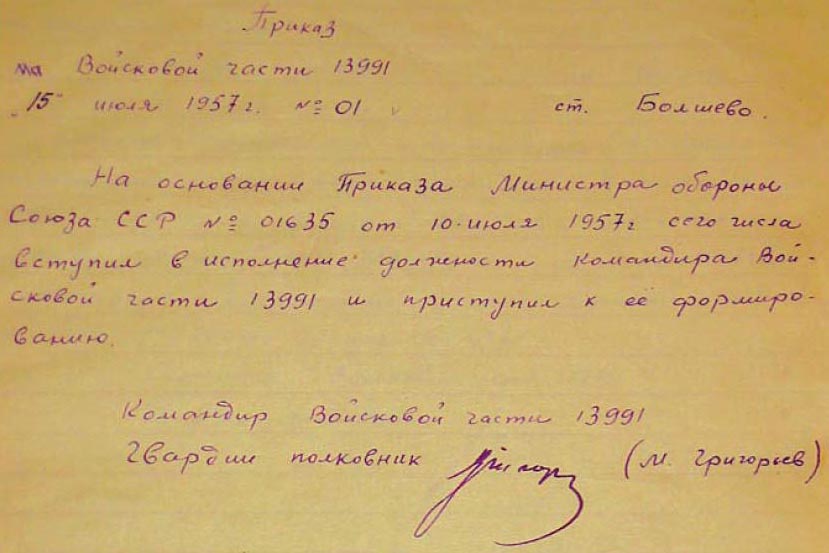 Приказ
на Войсковой части 13991
"15" июля 1957г. № 01 ст. Болшево.
На основании Приказа Министра обороны
Союза ССР № 01635 от 10 июля 1957г сего числа
вступил в исполнение должности командира Вой-
сковой части 13991 и приступил к её формиро-
ванию.
Командир Войсковой части 13991
Гвардии полковник Григор (М. Григорьев)